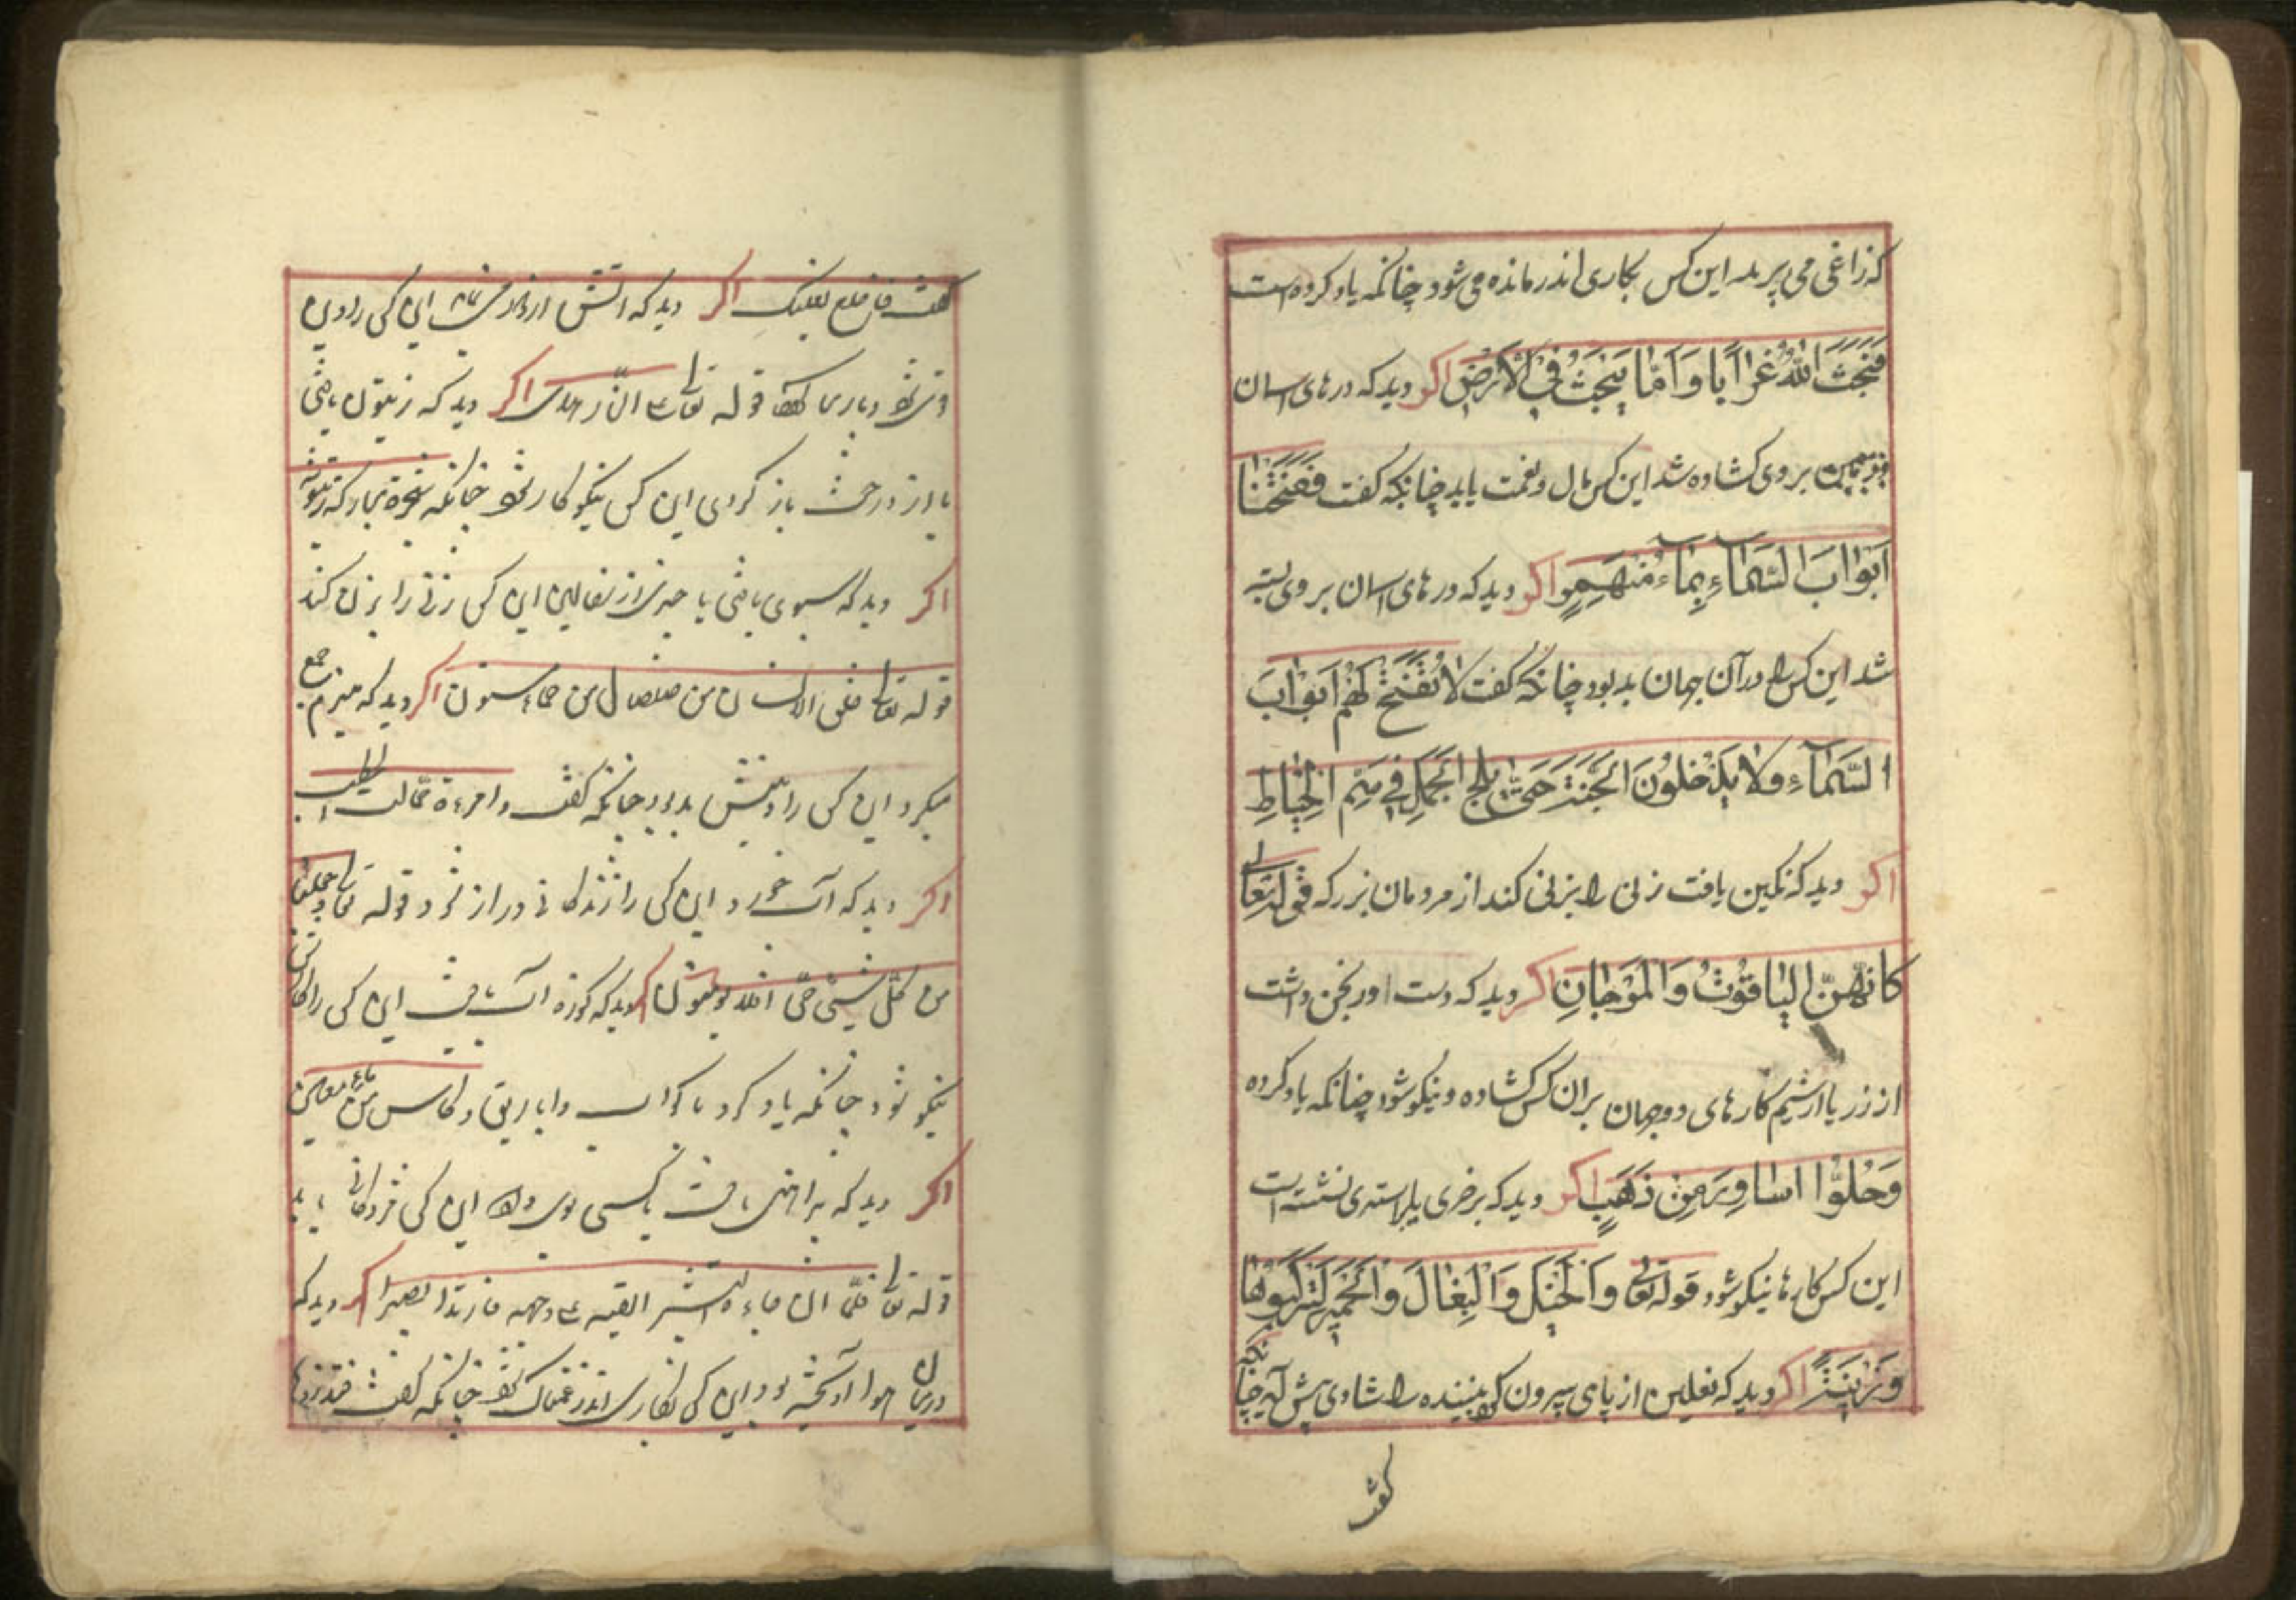 که زاغی می پرید این کس بکاری اندر مانده می شود چنانکه یاد کرده است
فَبَعَثَ اللهُ غُرَابًا وَامَّا یَبْحَثُ فِی الْاَرْضِ اکر دید که درهای اسمان
بروی کشاده شد این کس مال و نعمت یابد چنانکه کفت فَفَتَحْنَا
اَبْوَابَ السَّمَآءِ بِمَآءٍ مُنْهَمِرٍ اکر دید که درهای اسمان بروی بسته
شد این کس را در آن جهان بد بود چنانکه کفت لَا تُفَتَّحُ لَهُمْ اَبْوَابَ
السَّمَآءِ وَلَا یَدْخُلُونَ الْجَنَّةَ حَتّٰی یَلِجَ الْجَمَلُ فِی سَمِّ الْخِیَاطِ
اکر دید که نکین یافت زنی را بزنی کند از مردمان بزرک قوله تعالی
کَانَّهُنَّ الْیَاقُوتُ وَالْمَرْجَانِ اکر دید که دست اورنجن داشت
از زر یا ارشیم کارهای دوجهان بران کس کشاده و نیکو شود چنانکه یاد کرده
وَحُلُّوا اَسَاوِرَ مِنْ ذَهَبٍ اکر دید که بر خری یا بر استری نشسته است
این کس کارها نیکو شود قوله تعالی وَالْخَیْلَ وَالْبِغَالَ وَالْحَمِیرَ لِتَرْکَبُوهَا
وَزِینَةً اکر دید که نعلین از پای بیرون کرد بیننده را شادی پیش آید چنانکه
کفت
کفت فاخلع نعلیک اکر دید که اتش این کس را
قوله تعالی علی النار هدی اکر دید که زیتون یافتی
یا از درخت باز کردی این کس نیکو کار شود چنانکه شجرة مبارکة زیتونة
اکر دید که سبوی یافتی یا چیزی از سفالین این کس زنی را بزنی کند
قوله تعالی خلق الانسان من صلصال من حماء مسنون اکر دید که هیزم جمع
میکرد این کس را بد بود چنانکه کفت وامرءة حمالت الحطب
اکر دید که آب خورد این کس را زندکانی دراز شود قوله تعالی وجعلنا
من کل شیئ حی افلا یومنون اکر دید که کوزه آب یافت این کس را کارش
نیکو شود چنانکه یاد کرد باکواب واباریق وکاس من ماء معین
اکر دید که پیراهنی یافت یا کسی بوی داد این کس مژدکانی یابد
قوله تعالی فلمّا ان جاءه البشیر القیه علی وجهه فارتد بصیرا اکر دید که
درمیان هوا آویخته بود این کس بکاری اندر غمناک شود چنانکه کفت فتذروها